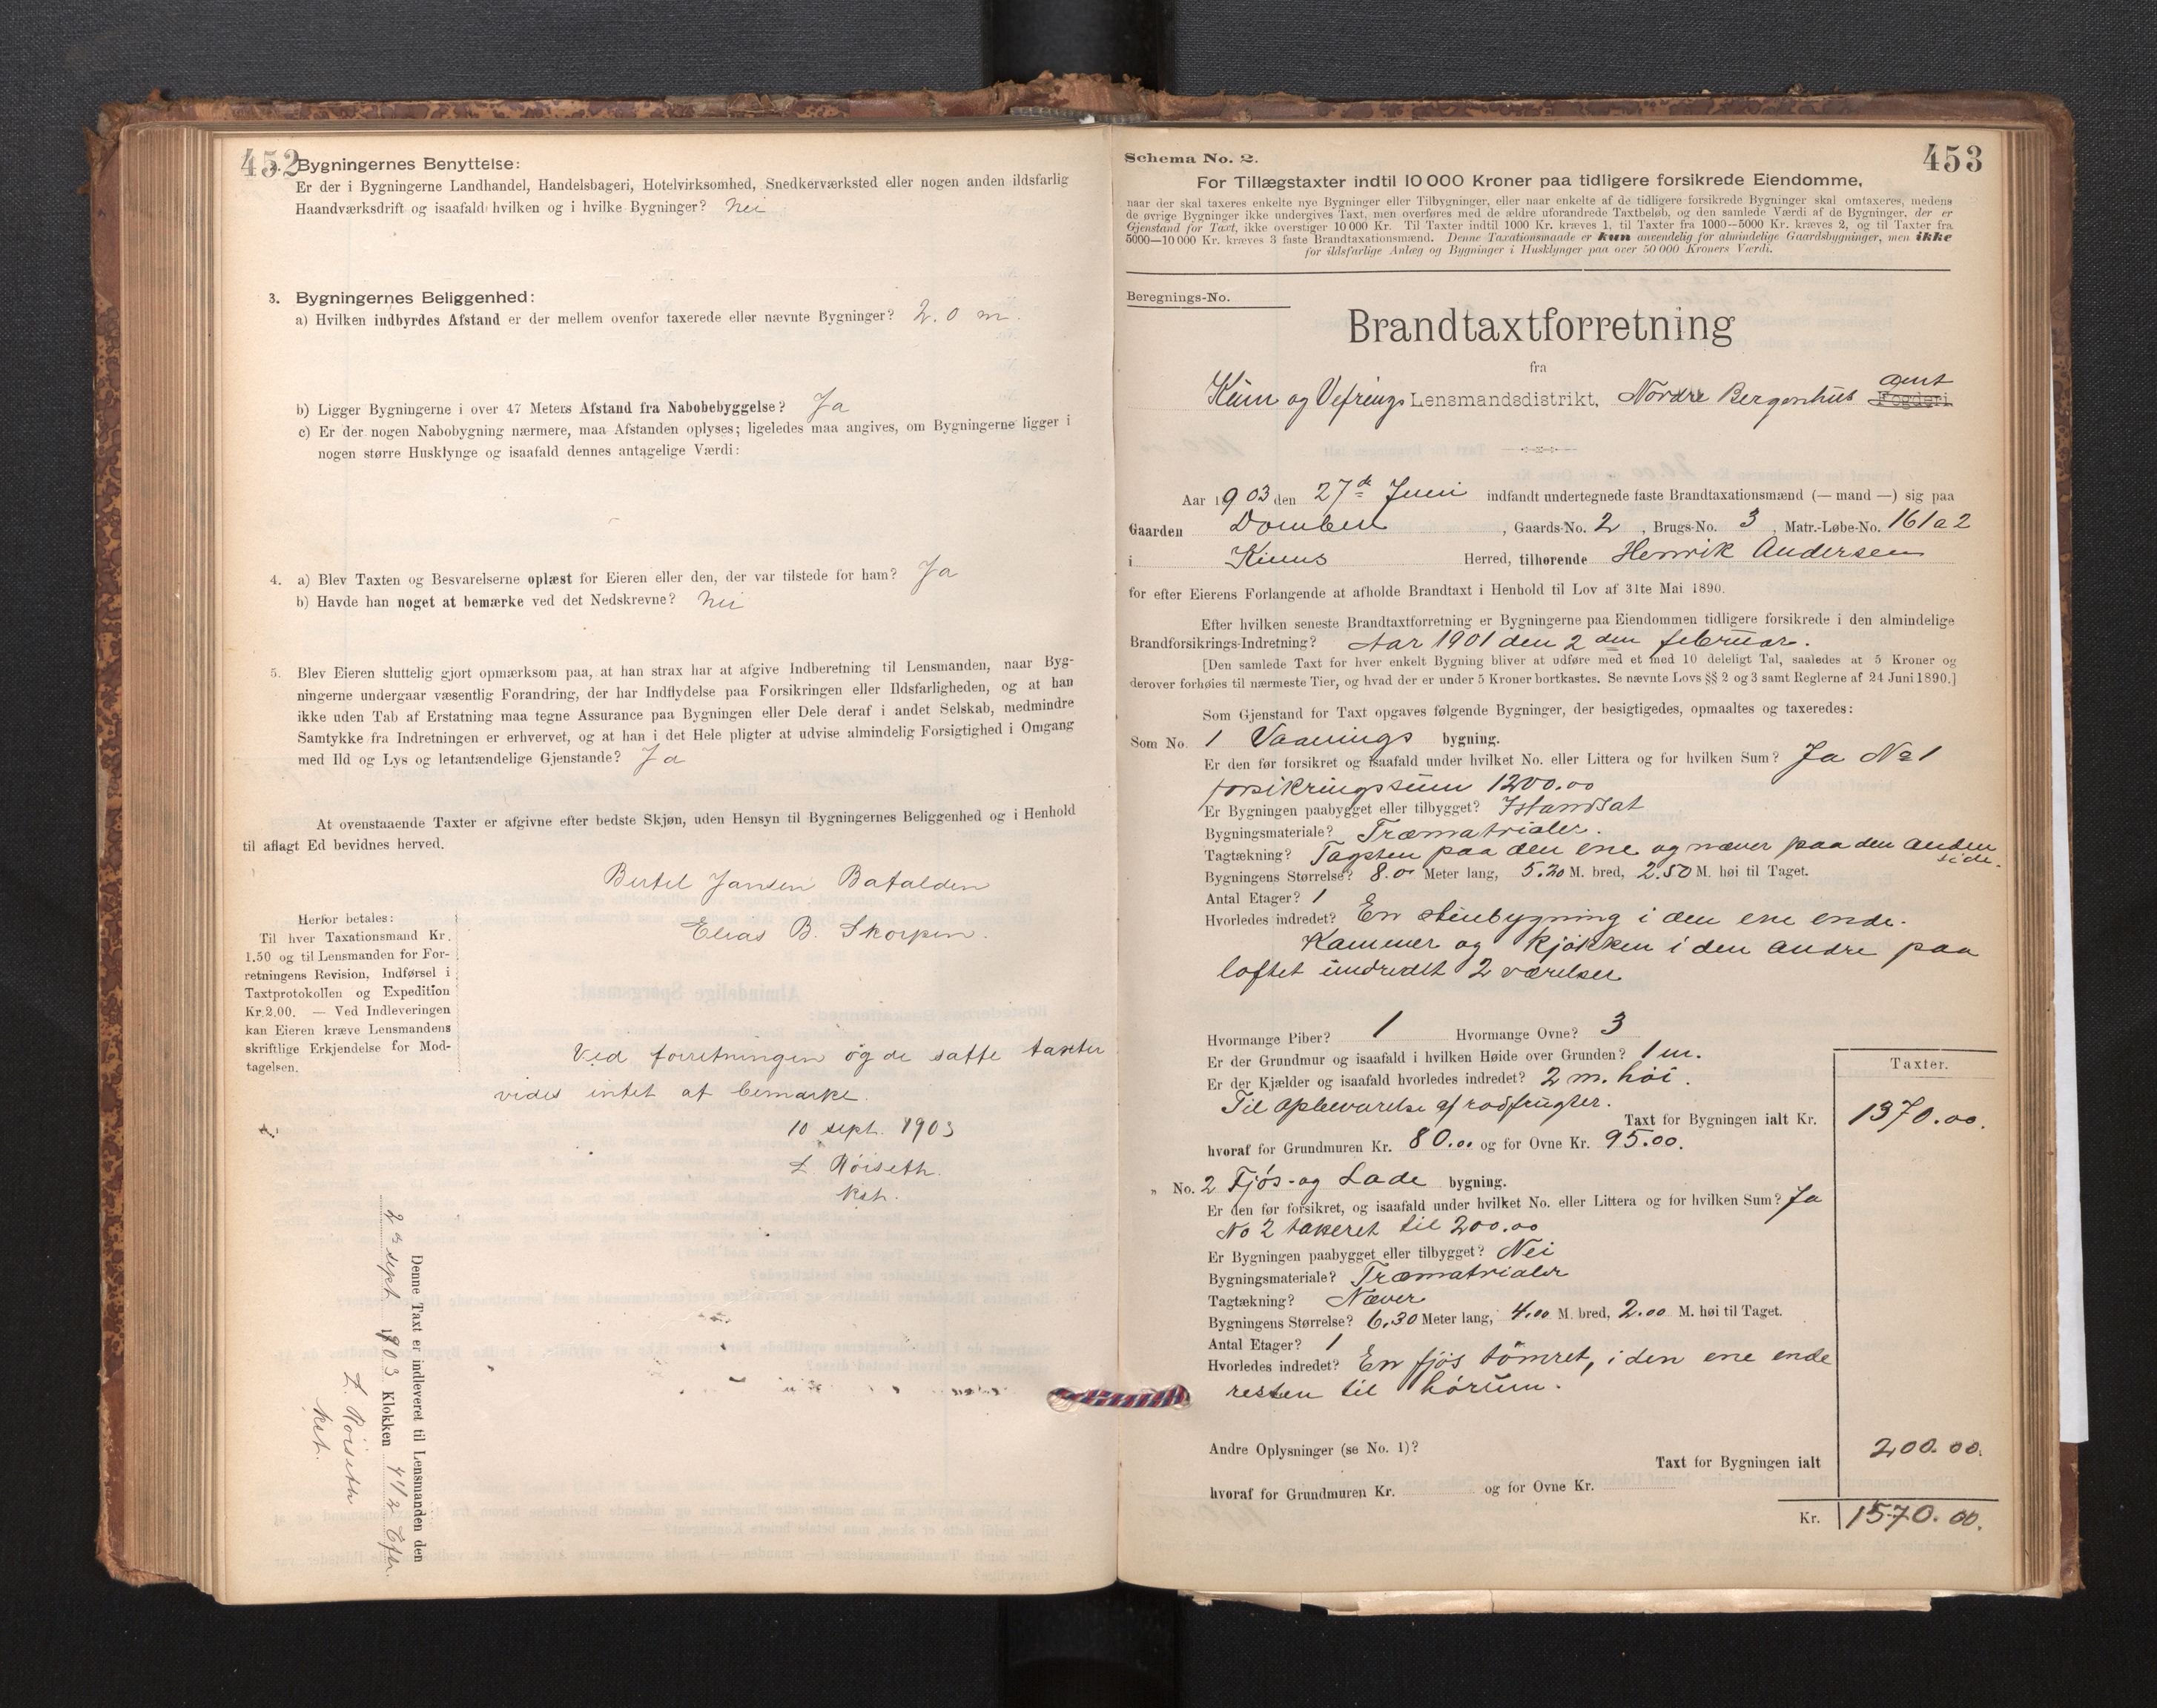 452
2. Bygningernes Benyttelse:
Er der i Bygningerne Landhandel, Handelsbageri, Hotelvirksomhed, Snedkerværksted eller nogen anden ildsfarlig
Haandværksdrift og isaafald hvilken og i hvilke Bygninger? Nei
3. Bygningernes Beliggenhed:
a) Hvilken indbyrdes Afstand er der mellem ovenfor taxerede eller nævnte Bygninger? 2.0 m.
b) Ligger Bygningerne i over 47 Meters Afstand fra Nabobebyggelse? Ja
c) Er der nogen Nabobygning nærmere, maa Afstanden oplyses; ligeledes maa angives, om Bygningerne ligger i
nogen større Husklynge og isaafald dennes antagelige Værdi:
4. a) Blev Taxten og Besvarelserne oplæst for Eieren eller den, der var tilstede for ham? Ja
b) Havde han noget at bemærke ved det Nedskrevne? Nei
5. Blev Eieren sluttelig gjort opmærksom paa, at han strax har at afgive Indberetning til Lensmanden, naar Byg-
ningerne undergaar væsentlig Forandring, der har Indflydelse paa Forsikringen eller Ildsfarligheden, og at han
ikke uden Tab af Erstatning maa tegne Assurance paa Bygningen eller Dele deraf i andet Selskab, medmindre
Samtykke fra Indretningen er erhvervet, og at han i det Hele pligter at udvise almindelig Forsigtighed i Omgang
med Ild og Lys og letantændelige Gjenstande? Ja
At ovenstaaende Taxter er afgivne efter bedste Skjøn, uden Hensyn til Bygningernes Beliggenhed og i Henhold
til aflagt Ed bevidnes herved.
Bertel Jansen Batalden
Elias B. Skorpen.
Herfor betales:
Til hver Taxationsmand Kr.
1.50 og til Lensmanden for For-
retningens Revision, Indførsel i
Taxtprotokollen og Expedition
Kr. 2.00. — Ved Indleveringen
kan Eieren kræve Lensmandens
skriftlige Erkjendelse for Mod-
tagelsen.
Ved forretningen og de satte taxter
vides intet at bemærke.
10 sept. 1903
L. Röiseth.
kst.
Denne Taxt er indleveret til Lensmanden den
2 sept 1903 Klokken 4 1/2 Efm.
L. Röiseth
kst.
453
Schema No. 2.
For Tillægstaxter indtil 10 000 Kroner paa tidligere forsikrede Eiendomme,
naar der skal taxeres enkelte nye Bygninger eller Tilbygninger, eller naar enkelte af de tidligere forsikrede Bygninger skal omtaxeres, medens
de øvrige Bygninger ikke undergives Taxt, men overføres med de ældre uforandrede Taxtbeløb, og den samlede Værdi af de Bygninger, der er
Gjenstand for Taxt, ikke overstiger 10 000 Kr. Til Taxter indtil 1000 Kr. kræves 1, til Taxter fra 1000—5000 Kr. kræves 2, og til Taxter fra
5000—10 000 Kr. kræves 3 faste Brandtaxationsmænd. Denne Taxationsmaade er kun anvendelig for almindelige Gaardsbygninger, men ikke
for ildsfarlige Anlæg og Bygninger i Husklynger paa over 50 000 Kroners Værdi.
Beregnings-No.
Brandtaxtforretning
fra
Kinn og Vefrings Lensmandsdistrikt, Nordre Bergenhus amt Fogderi.
Aar 1903 den 27de Juni indfandt undertegnede faste Brandtaxationsmænd (— mand —) sig paa
Gaarden Domben, Gaards-No. 2, Brugs-No. 3, Matr.-Løbe-No. 161 a 2
i Kinns Herred, tilhørende Henrik Andersen
for efter Eierens Forlangende at afholde Brandtaxt i Henhold til Lov af 31te Mai 1890.
Efter hvilken seneste Brandtaxtforretning er Bygningerne paa Eiendommen tidligere forsikrede i den almindelige
Brandforsikrings-Indretning? Aar 1901 den 2den februar.
[Den samlede Taxt for hver enkelt Bygning bliver at udføre med et med 10 deleligt Tal, saaledes at 5 Kroner og
derover forhøies til nærmeste Tier, og hvad der er under 5 Kroner bortkastes. Se nævnte Lovs §§ 2 og 3 samt Reglerne af 24 Juni 1890.]
Som Gjenstand for Taxt opgaves følgende Bygninger, der besigtigedes, opmaaltes og taxeredes:
Som No. 1 Vaanings bygning.
Er den før forsikret og isaafald under hvilket No. eller Littera og for hvilken Sum? Ja No 1
forsikringssum 1200.00
Er Bygningen paabygget eller tilbygget? Istandsat
Bygningsmateriale? Træmatrialer.
Tagtækning? Tagsten paa den ene og næver paa den anden side.
Bygningens Størrelse? 8.00 Meter lang, 5.20 M. bred, 2.50 M. høi til Taget.
Antal Etager? 1
Hvorledes indredet? En stuebygning i den ene ende.
Kammer og Kjøkken i den andre paa
loftet indredet 2 værelser
Hvormange Piber? 1 Hvormange Ovne? 3
Er der Grundmur og isaafald i hvilken Høide over Grunden? 1 m.
Er der Kjælder og isaafald hvorledes indredet? 2 m. høi.
Til opbevarelse af rodfrugter.
Taxter.
Taxt for Bygningen ialt Kr. 1370.00.
hvoraf for Grundmuren Kr. 80.00 og for Ovne Kr. 95.00.
" No. 2 Fjøs- og Lade bygning.
Er den før forsikret, og isaafald under hvilket No. eller Littera og for hvilken Sum? Ja
No 2 taxeret til 200.00
Er Bygningen paabygget eller tilbygget? Nei
Bygningsmateriale? Træmatrialer
Tagtækning? Næver
Bygningens Størrelse? 6.30 Meter lang, 4.00 M. bred, 2.00 M. høi til Taget.
Antal Etager? 1
Hvorledes indredet? En fjøs tømret, i den ene ende
resten til hørum.
Andre Oplysninger (se No. 1)?
Taxt for Bygningen ialt 200.00.
hvoraf for Grundmuren Kr. og for Ovne Kr.
Kr. 1570.00.